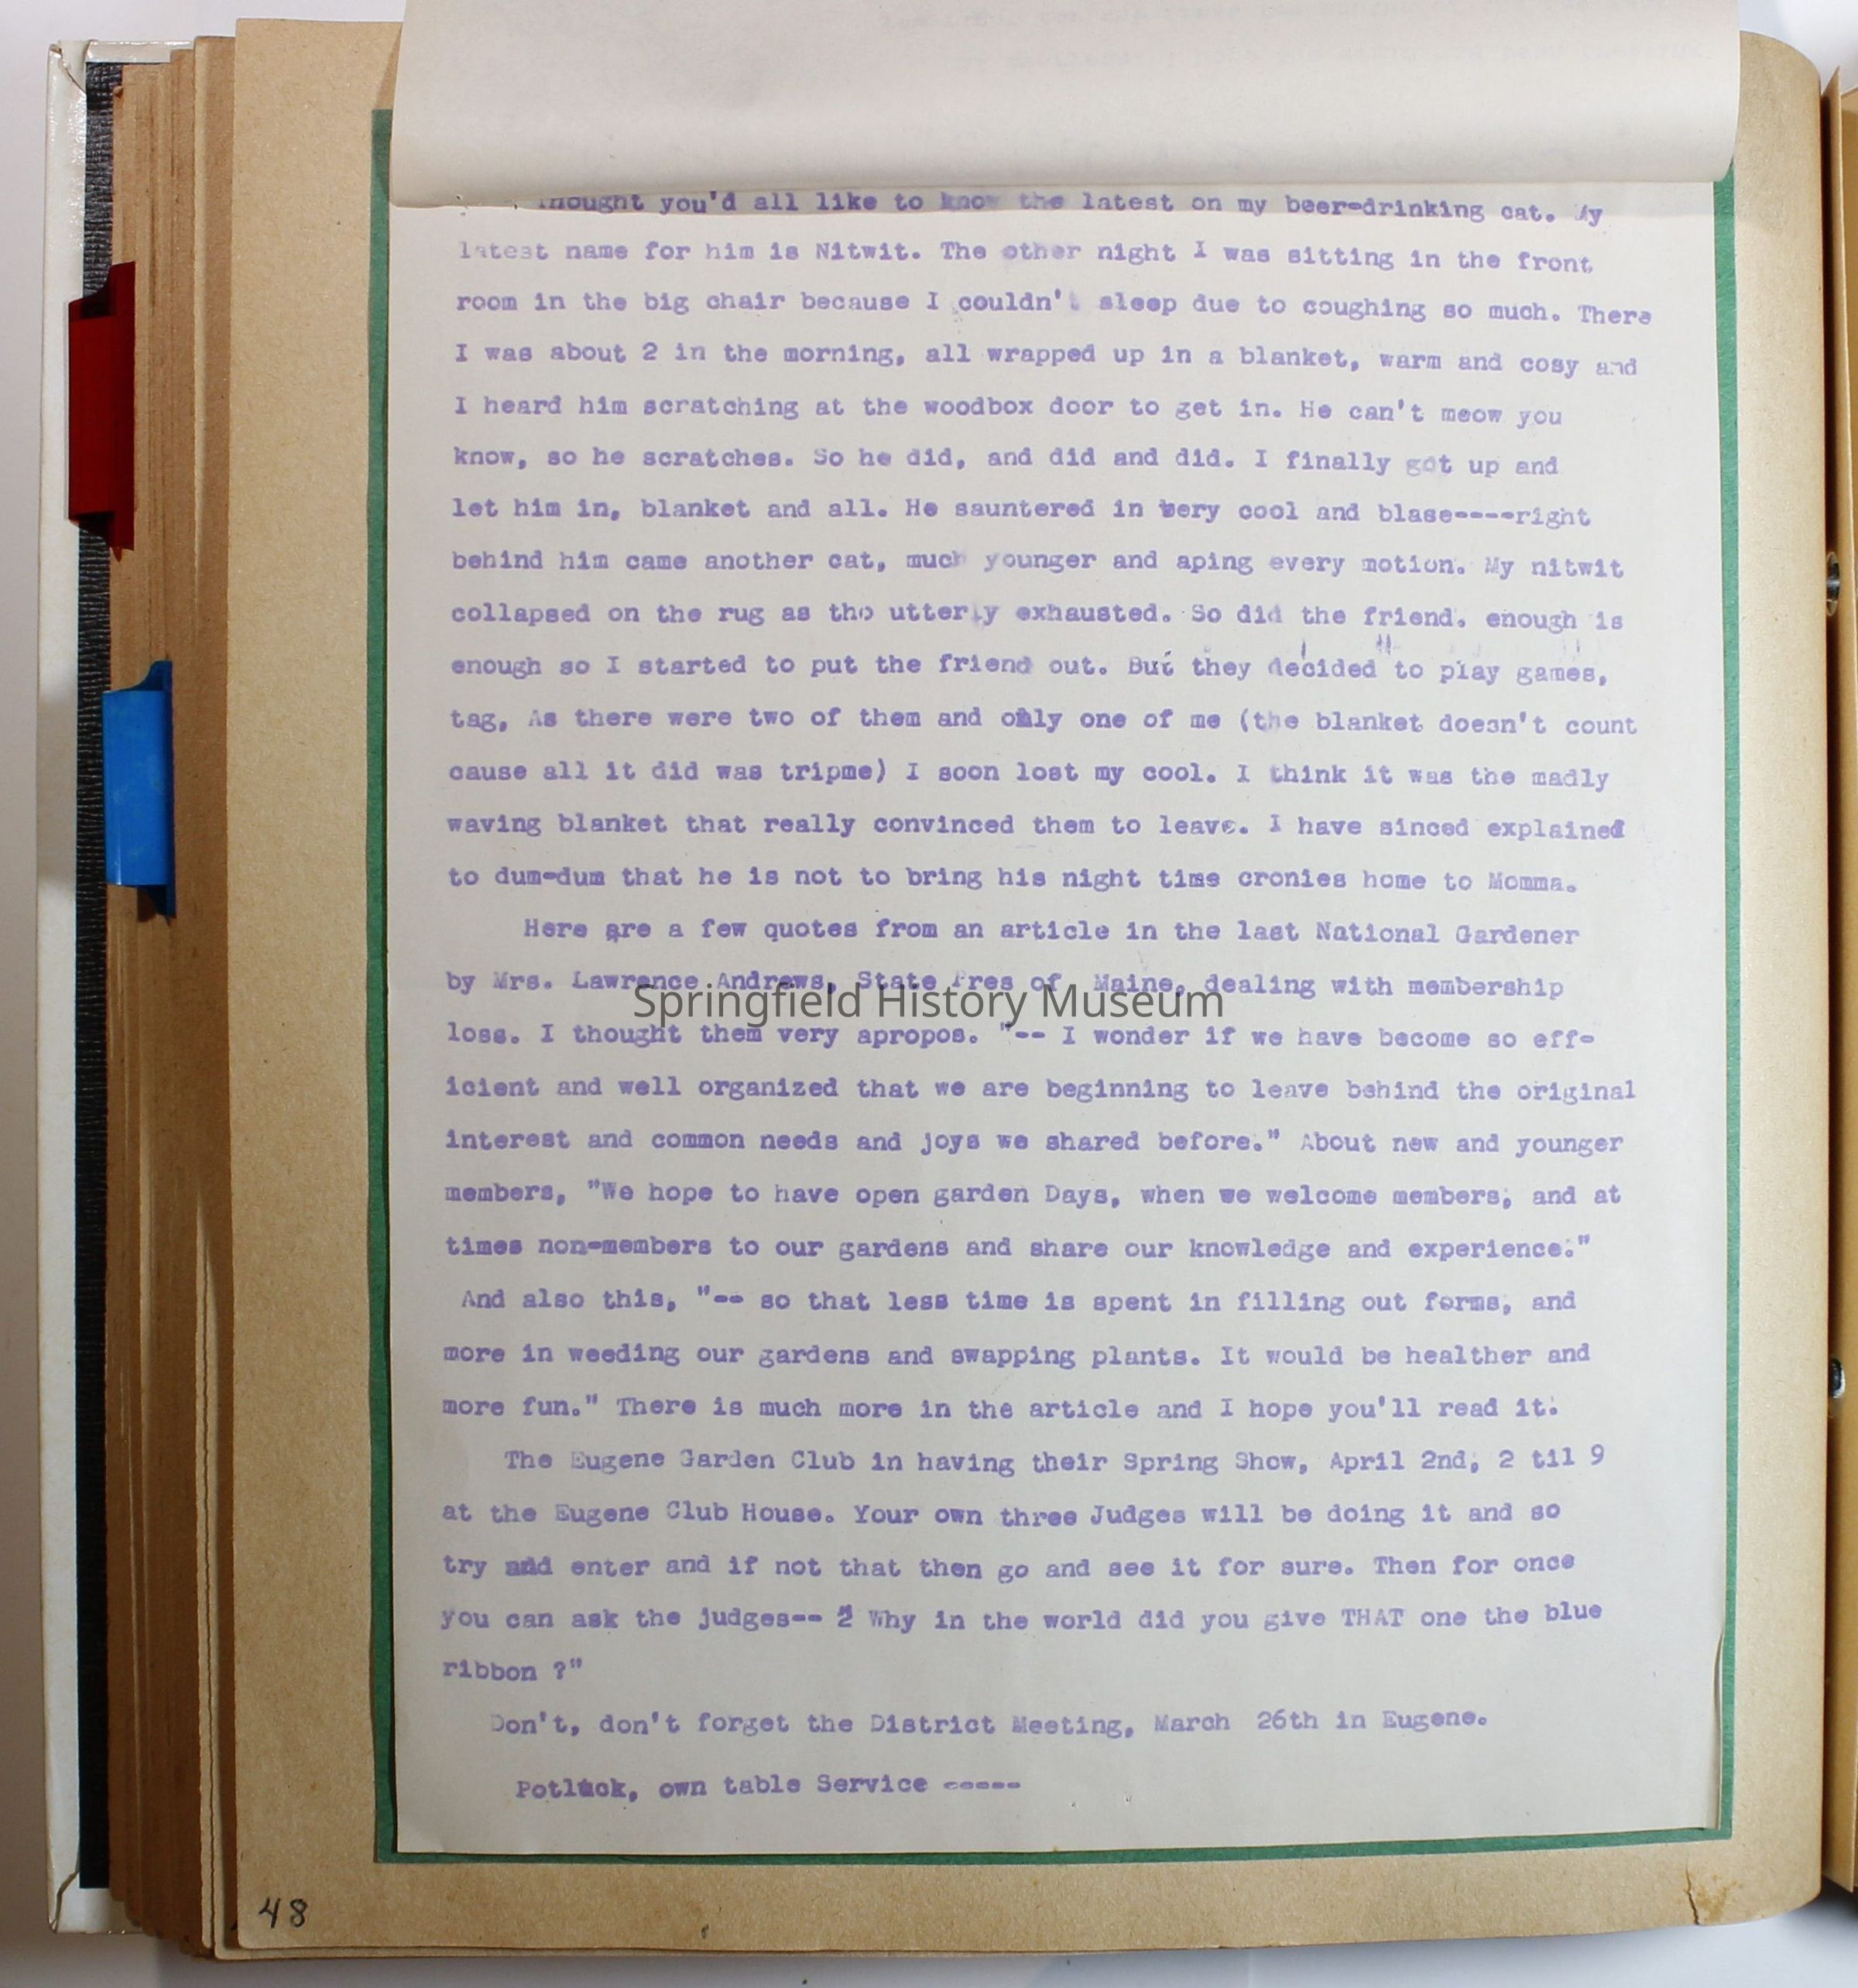 thought you'd all like to know the latest on my beer-drinking cat. My
latest name for him is Nitwit. The other night I was sitting in the front
room in the big chair because I couldn't sleep due to coughing so much. There
I was about 2 in the morning, all wrapped up in a blanket, warm and cosy and
I heard him scratching at the woodbox door to get in. He can't meow you
know, so he scratches. So he did, and did and did. I finally got up and
let him in, blanket and all. He sauntered in very cool and blase----right
behind him came another cat, much younger and aping every motion. My nitwit
collapsed on the rug as tho utterly exhausted. So did the friend. enough is
enough so I started to put the friend out. But they decided to play games,
tag, As there were two of them and only one of me (the blanket doesn't count
cause all it did was tripme) I soon lost my cool. I think it was the madly
waving blanket that really convinced them to leave. I have sinced explained
to dum-dum that he is not to bring his night time cronies home to Momma.
Here are a few quotes from an article in the last National Gardener
by Mrs. Lawrence Andrews, State Pres of Maine, dealing with membership
Springfield History Museum
loss. I thought them very apropos. "-- I wonder if we have become so eff-
icient and well organized that we are beginning to leave behind the original
interest and common needs and joys we shared before." About new and younger
members, "We hope to have open garden Days, when we welcome members, and at
times non-members to our gardens and share our knowledge and experience."
And also this, "-- so that less time is spent in filling out forms, and
more in weeding our gardens and swapping plants. It would be healther and
more fun." There is much more in the article and I hope you'll read it.
The Eugene Garden Club in having their Spring Show, April 2nd, 2 til 9
at the Eugene Club House. Your own three Judges will be doing it and so
try and enter and if not that then go and see it for sure. Then for once
you can ask the judges-- " Why in the world did you give THAT one the blue
ribbon ?"
Don't, don't forget the District Meeting, March 26th in Eugene.
Potluck, own table Service -----
48